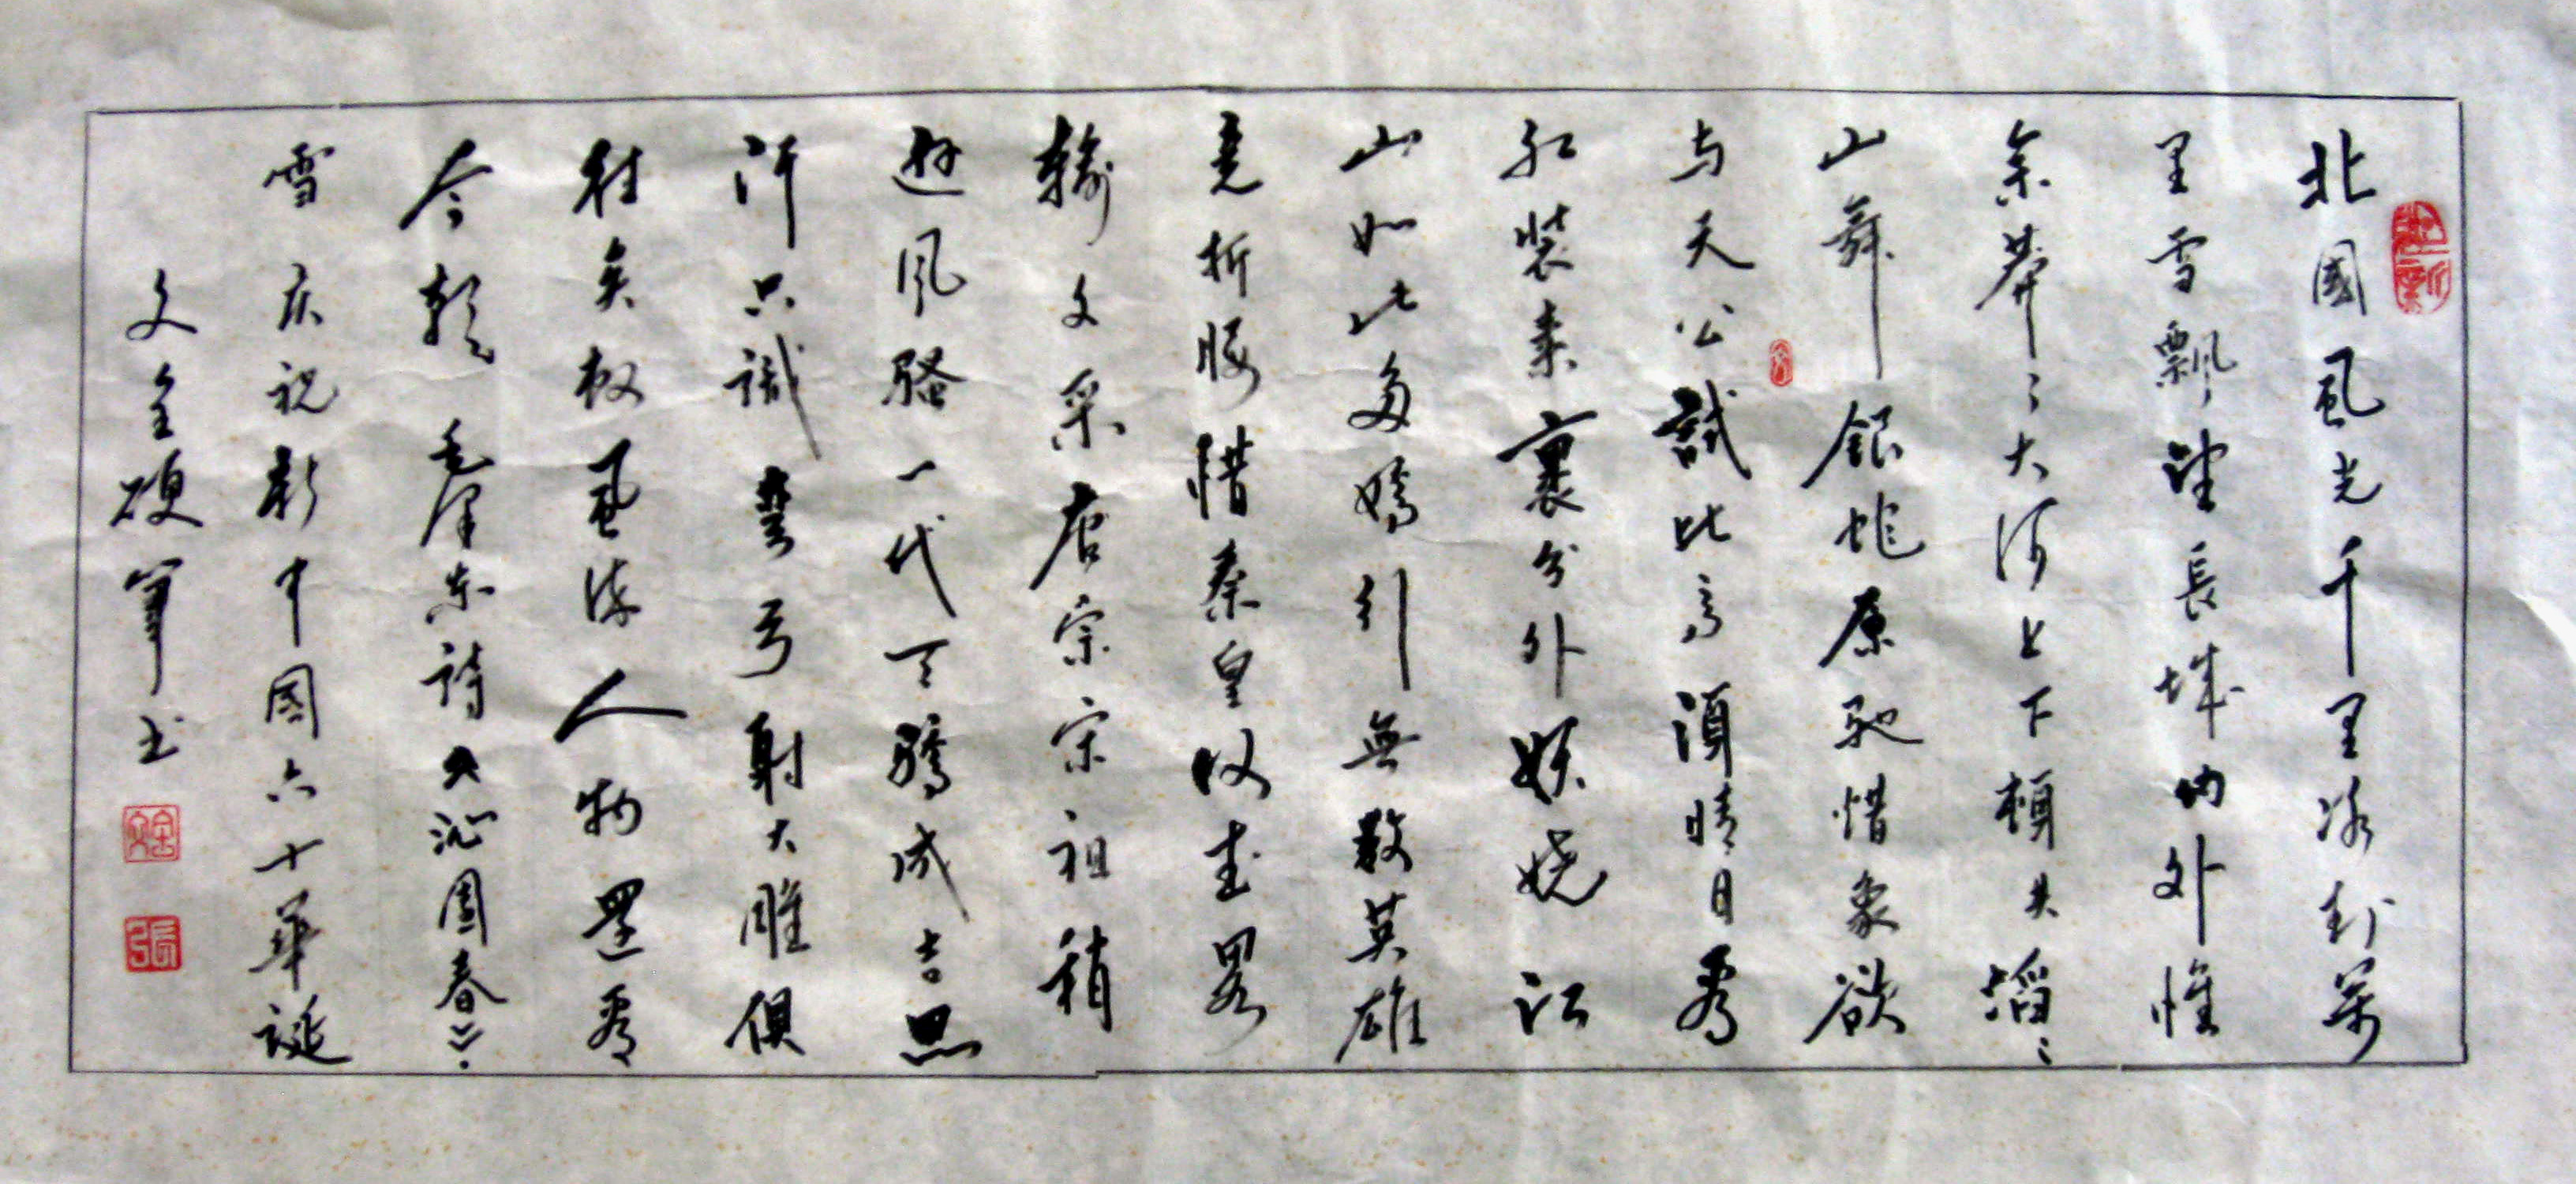 北國風光千里冰封萬
里雪飄望長城内外惟
余莽々大河上下頓失滔々
山舞銀蛇原馳惜象欲
与天公試比高須晴日看
紅裝素裹分外妖娆江
山如此多嬌引無數英雄
竞折腰惜秦皇汉武略
輸文采唐宗宋祖稍
逊風騷一代天驕成吉思
汗只識彎弓射大雕俱
往矣数風流人物還看
今朝 毛澤东詩《沁園春》·
雪庆祝新中國六十華诞
文全硬筆书
文全
張